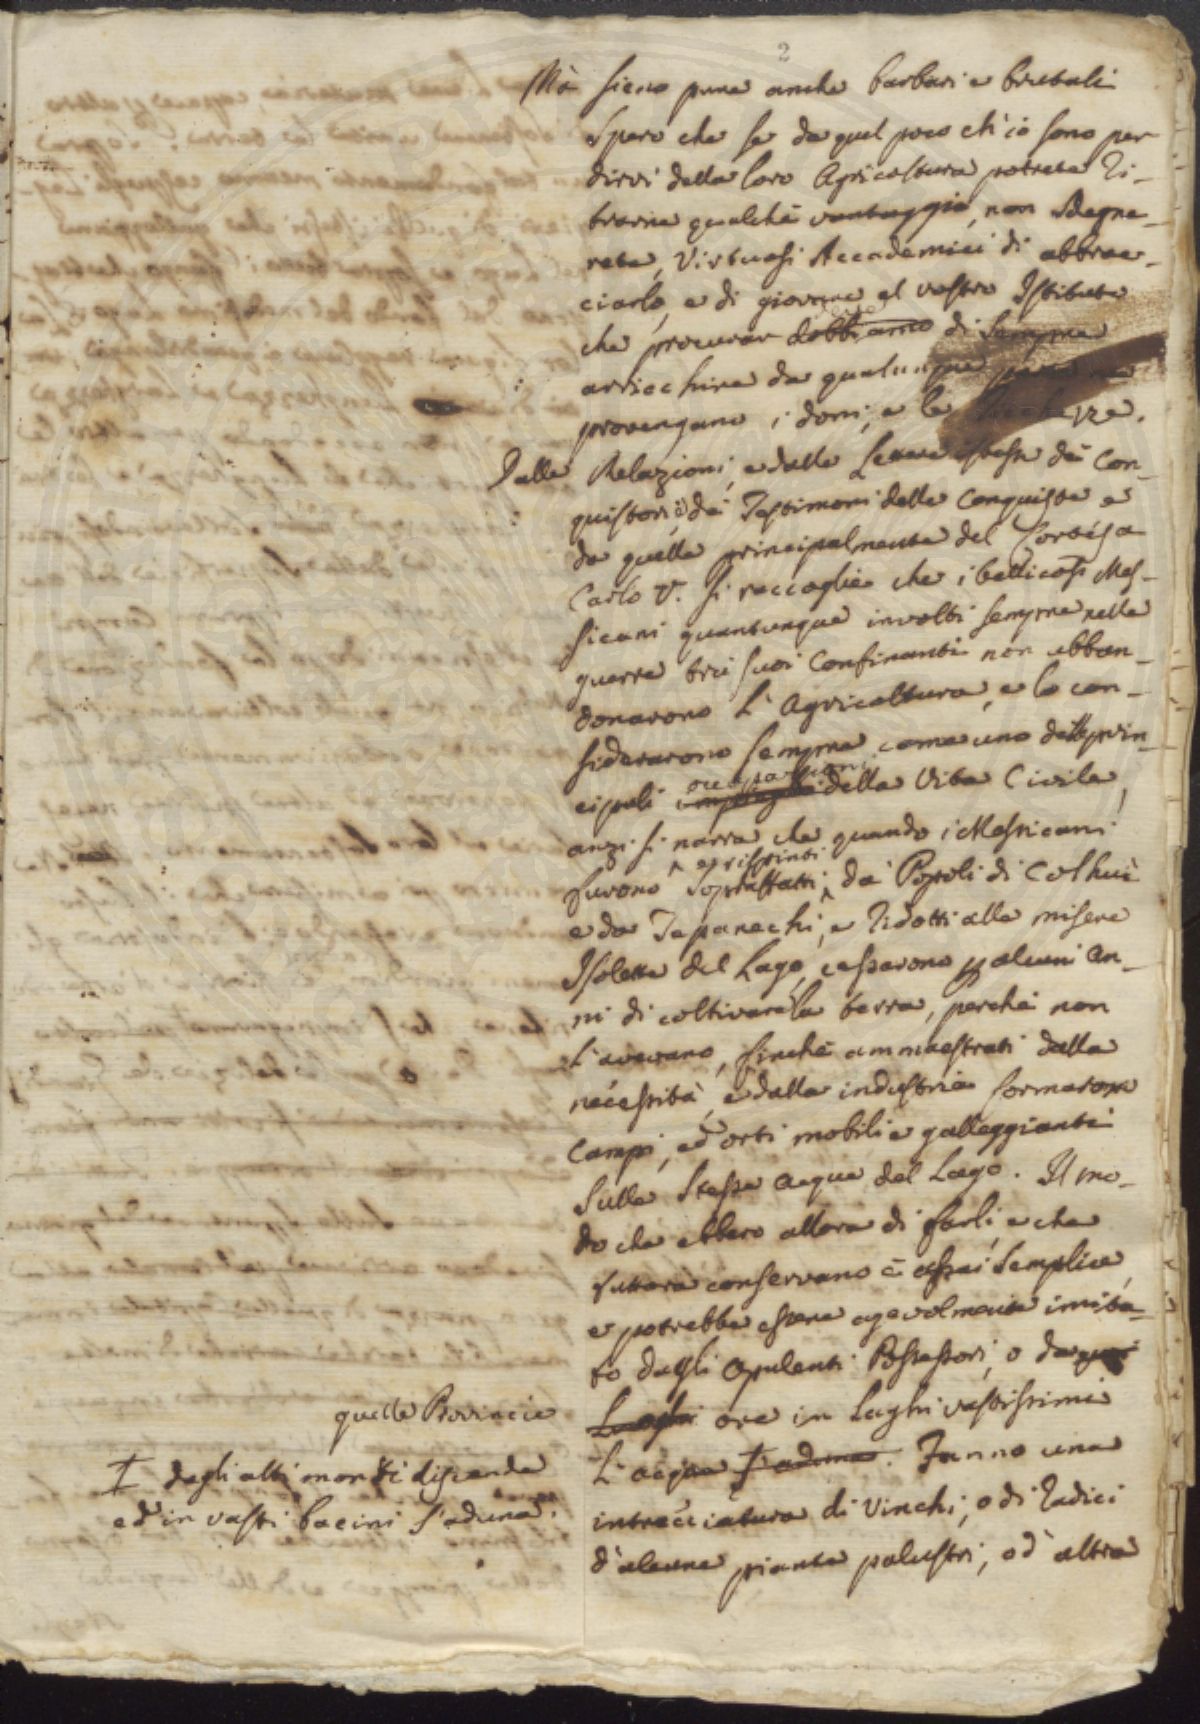 2
Mà sieno pure anche barbari e brutali
spero che se da quel poco ch'io sono per
dirvi della loro Agricoltura potrete Ri-
trarne qualche vantaggio, non sdegne-
rete, Virtuosi Accademici di abbrac-
ciarlo, e di giovarne al vostro Istituto
che procurar dobbiamo di sempre
arricchire da qualunque parte
provengano i doni, e le Ricchezze.
Dalle Relazioni, e dalle Lettere stesse dei Con-
quistori, dei Testimoni della Conquista e
da quelle principalmente del Cortés a
Carlo V. si raccoglie che i bellicosi Mes-
sicani quantunque involti sempre nelle
guerre tra i suoi Confinanti non abban-
donarono l'Agricoltura, e la con-
siderarono sempre come una delle prin-
occupazioni
cipali della Vita Civile,
anzi si narra che quando i Messicani
e ristrinti
furono soprafatti da Popoli di Colhuì
e da Tepanechi, e ridotti alle misere
Isolette del Lago, cessarono p alcuni an-
ni di coltivare la terra, perchè non
l'avevano, sinchè ammaestrati dalla
necessità, e dalla industria formarono
Campi, ed orti mobili e galleggianti
sulle stesse acque del Lago. Il mo-
do che ebbero allora di farli, e che
tuttora conservano è assai semplice,
e potrebbe essere agevolmente imita-
to dagli opulenti Possessori, o da que
Luoghi ove in Laghi vastissimi
l'acqua s'aduna. Fanno una
intrecciatura di Vinchi, o di Radici
d'alcune piante palustri, o d'altra
quelle Provincie
† dagli alti monti discende
ed in vasti bacini s'aduna.